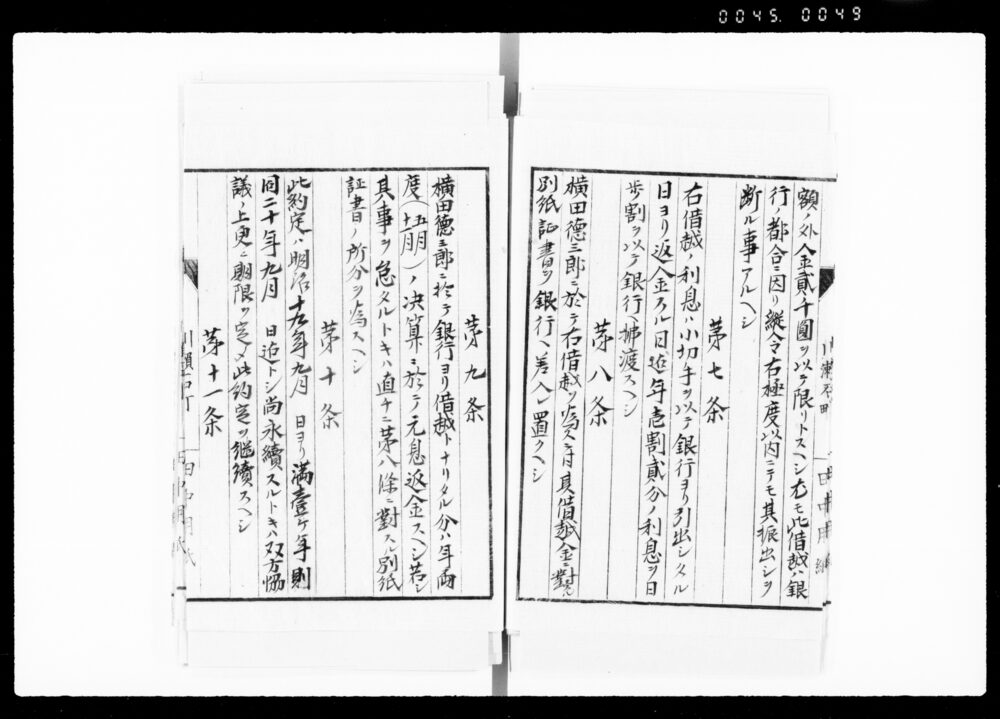 0045. 0049
額ノ外金貳千圓ヲ以テ限リトスヘシ尤モ此借越ハ銀
行ノ都合ニ因リ縦令右極度以内ニテモ其振出シヲ
断ル事アルヘシ
第七条
右借越ノ利息ハ小切手ヲ以テ銀行ヨリ引出シタル
日ヨリ返金スル日迄年壱割貳分ノ利息ヲ日
歩割ヲ以テ銀行ヘ拂渡スヘシ
第八条
横田徳三郎ニ於テ右借越ヲ為スニ付其借越金ニ對シ
別紙証書ヲ銀行ヘ差入レ置クヘシ
第九条
横田徳三郎ニ於テ銀行ヨリ借越トナリタル分ハ年両
度(五月十一月)ノ決算ニ於テ元息返金スヘシ若シ
其事ヲ怠タルトキハ直チニ第八條ニ對スル別紙
証書ノ所分ヲ為スヘシ
第十条
此約定ハ明治十九年九月 日ヨリ満壹ケ年則
同二十年九月 日迄トシ尚永續スルトキハ双方協
議ノ上更ニ期限ヲ定メ此約定ヲ継續スヘシ
第十一条